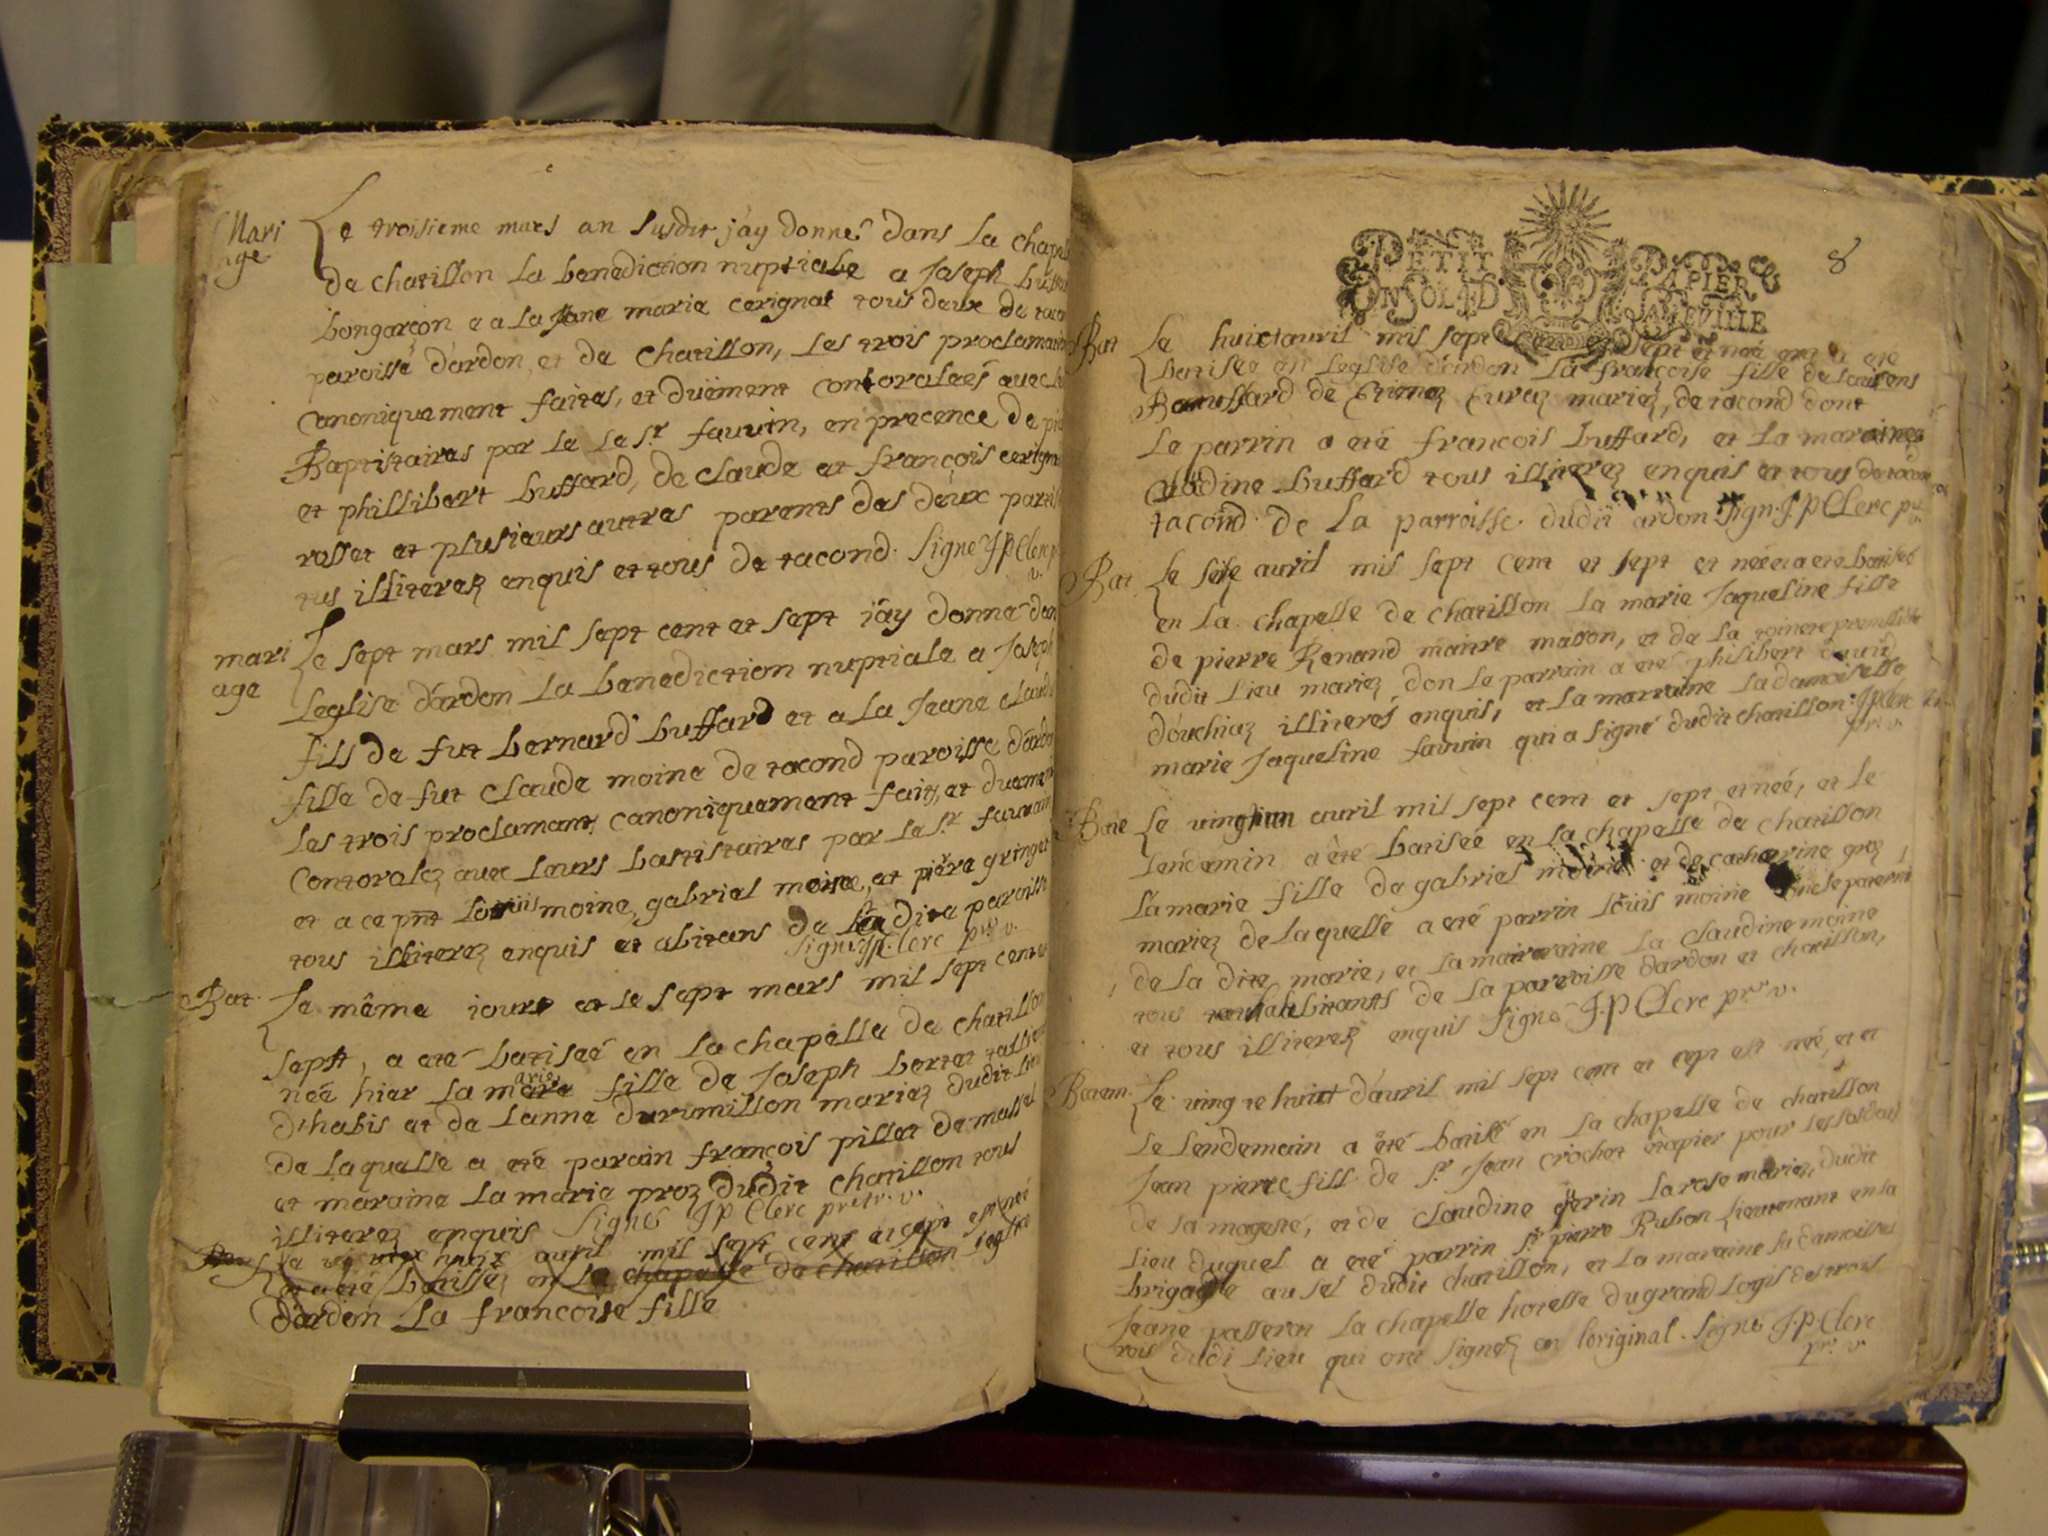 Mari
age
Le troisieme mars an susdit j'ay donné dans la chapel
de chatillon la benediction nuptiale a Joseph buffa
bongarçon e a la Jane marie cerignat tous deux de taco
paroisse d'ardon et de Chatillon, les trois proclamati
canoniquement faites, et duëment controleés avec le
Baptistaires par le Sr. fauvin, en precence de pie
et phillibert buffard, de claude et françois cerigna
rosset et plusieurs autres parents des deux partis
tus illiterez enquis et tous de tacond. signé J P Clerc p
v.
mari
age
Le sept mars mil sept cent et sept j'ay donné dan
Leglise d'ardon la benediction nuptiale a Joseph
fils de fut bernard buffard et a la Jeane claud
fille de fut claude moine de tacond paroisse d'ardo
les trois proclamant canoniquement faits, et duement
controlez avec leurs bastistaires par le Sr. fauvain
et a ce pnt louis moine, gabriel moine, et piere gringet
tous illiterez enquis et abitans de la dite paroisse
signé J P Clerc pre v.
Bat.
Le même jour et le sept mars mil sept cent et
sept, a eté batiseé en la chapelle de chatillon
neé hier la marie fille de Joseph bertet
d'habis et de Lanne durumillon mariez dudit lieu
de laquelle a eté parain françois pillet de massel
et maraine la marie proz dudit chatillon tous
illiterez enquis signé J P Clerc pretr. v.
Le huit avril mil sept cent et sept est neé
et a eté batisseé en la chapelle de chatillon leglise
d'ardon La francoise fille
8
PETIT PAPIER
UN SOL 4 D.
LA FEVILLE
Bat
Le huict avril mil sept cent et sept et neé et a eté
batiseé en leglise d'ardon La françoise fille de
Bauffard de Curaz mariez, de tacond dont
Le parrin a eté françois buffard, et la maraine
Claudine buffard tous illiterez enquis et tous de tacon
tacond de La parroisse dudit ardon signé J P Clerc pr
v.
Bat.
Le seize avril mil sept cent et sept et neé et a eté batiseé
en la chapelle de chatillon la marie Jaqueline fille
de pierre Renand maitre masson, et de la toinete
dudit lieu mariez, don le parrain a eté philibert
d'ouchiaz illiteres enquis, et la marraine la damoiselle
marie Jaqueline fauvin qui a signé dudit chatillon J P Clerc
pr. v.
Bate
Le vingt un avril mil sept cent et sept et neé, et le
lendemin a eté batiseé en la chapelle de chatillon
La marie fille de gabriel moine et de catherine groz
mariez de laquelle a eté parrin louis moine oncle paternel
de la dite marie, et la mairaine la claudine moine
tous habitants de la paroisse d'ardon et chatillon,
et tous illiterez enquis signé J.P Clerc pre. v.
Batem.
Le vingt e huict d'avril mil sept cent et cept est neé, et
le lendemain a eté batisé en la chapelle de chatillon
Jean pierre fills de Sr. Jean crochet etapier pour les soldats
de sa magesté, et de claudine perin larose mariez, dudit
lieu duquel a eté parrin Sr. pierre Rubon lieutenant en la
brigade au sel dudit chatillon, et la maraine la damoiselle
Jeane passerat la chapelle hotesse du grand logis des trois
rois dudi lieu qui ont signez en loriginal. signé J.P Clerc
pr. v.